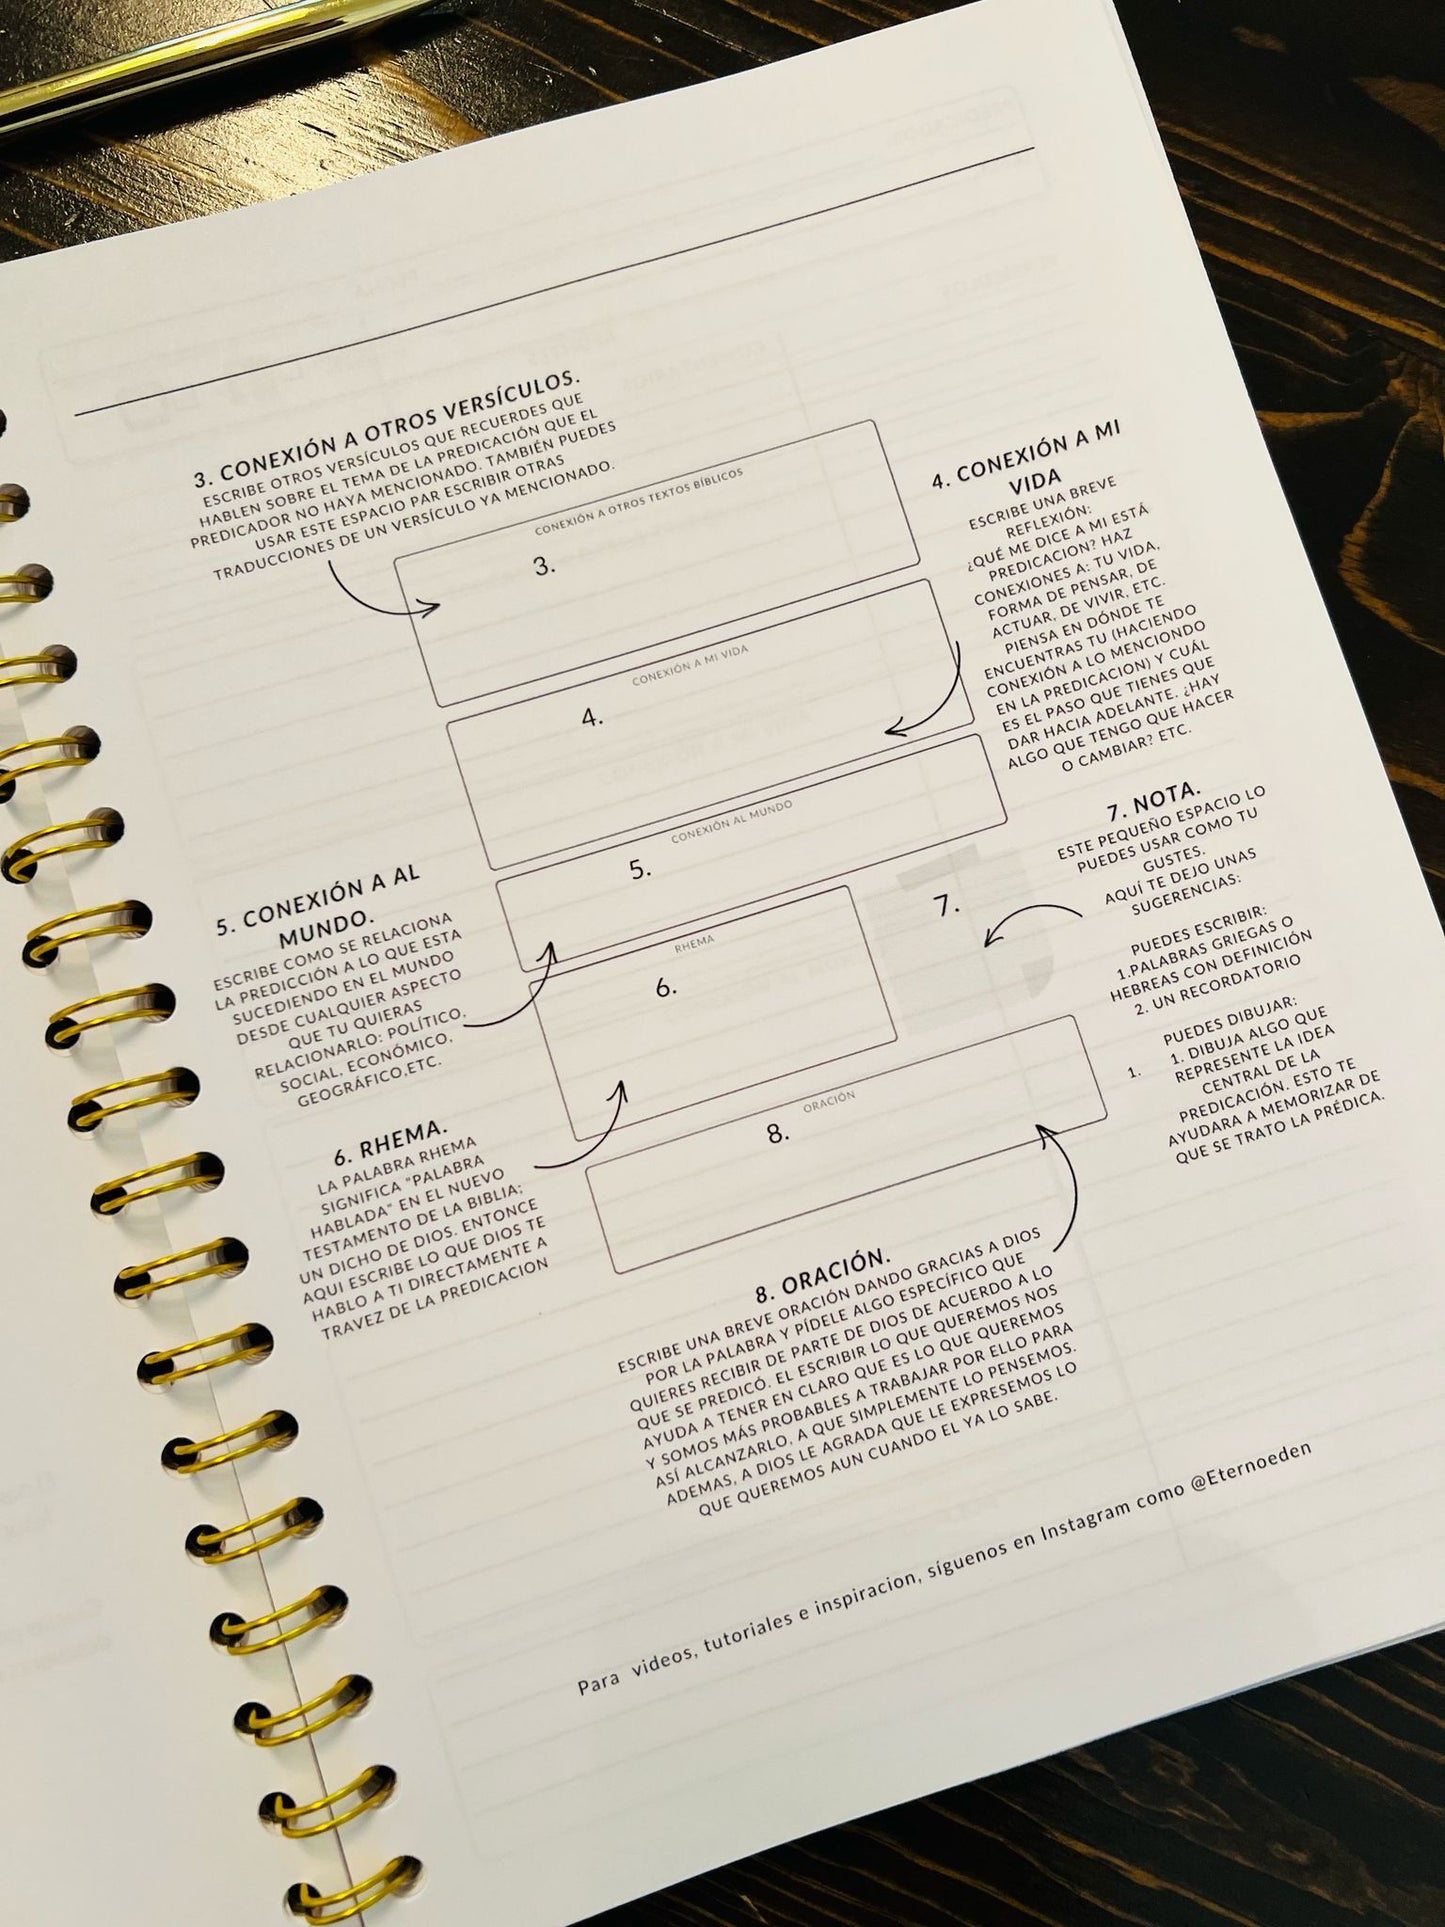 3. CONEXIÓN A OTROS VERSÍCULOS.
ESCRIBE OTROS VERSÍCULOS QUE RECUERDES QUE
HABLEN SOBRE EL TEMA DE LA PREDICACIÓN QUE EL
PREDICADOR NO HAYA MENCIONADO. TAMBIÉN PUEDES
USAR ESTE ESPACIO PAR ESCRIBIR OTRAS
TRADUCCIONES DE UN VERSÍCULO YA MENCIONADO.
CONEXIÓN A OTROS TEXTOS BÍBLICOS
3.
4. CONEXIÓN A MI
VIDA
ESCRIBE UNA BREVE
REFLEXIÓN:
¿QUÉ ME DICE A MI ESTÁ
PREDICACION? HAZ
CONEXIONES A: TU VIDA,
FORMA DE PENSAR, DE
ACTUAR, DE VIVIR, ETC.
PIENSA EN DÓNDE TE
ENCUENTRAS TU (HACIENDO
CONEXIÓN A LO MENCIONDO
EN LA PREDICACION) Y CUÁL
ES EL PASO QUE TIENES QUE
DAR HACIA ADELANTE. ¿HAY
ALGO QUE TENGO QUE HACER
O CAMBIAR? ETC.
CONEXIÓN A MI VIDA
4.
CONEXIÓN AL MUNDO
5.
5. CONEXIÓN A AL
MUNDO.
ESCRIBE COMO SE RELACIONA
LA PREDICCIÓN A LO QUE ESTA
SUCEDIENDO EN EL MUNDO
DESDE CUALQUIER ASPECTO
QUE TU QUIERAS
RELACIONARLO: POLÍTICO,
SOCIAL, ECONÓMICO,
GEOGRÁFICO,ETC.
7. NOTA.
ESTE PEQUEÑO ESPACIO LO
PUEDES USAR COMO TU
GUSTES.
AQUÍ TE DEJO UNAS
SUGERENCIAS:
PUEDES ESCRIBIR:
1.PALABRAS GRIEGAS O
HEBREAS CON DEFINICIÓN
2. UN RECORDATORIO
PUEDES DIBUJAR:
1. 1. DIBUJA ALGO QUE
REPRESENTE LA IDEA
CENTRAL DE LA
PREDICACIÓN. ESTO TE
AYUDARA A MEMORIZAR DE
QUE SE TRATO LA PRÉDICA.
7.
RHEMA
6.
6. RHEMA.
LA PALABRA RHEMA
SIGNIFICA "PALABRA
HABLADA" EN EL NUEVO
TESTAMENTO DE LA BIBLIA;
UN DICHO DE DIOS. ENTONCE
AQUI ESCRIBE LO QUE DIOS TE
HABLO A TI DIRECTAMENTE A
TRAVEZ DE LA PREDICACION
ORACIÓN
8.
8. ORACIÓN.
ESCRIBE UNA BREVE ORACIÓN DANDO GRACIAS A DIOS
POR LA PALABRA Y PÍDELE ALGO ESPECÍFICO QUE
QUIERES RECIBIR DE PARTE DE DIOS DE ACUERDO A LO
QUE SE PREDICÓ. EL ESCRIBIR LO QUE QUEREMOS NOS
AYUDA A TENER EN CLARO QUE ES LO QUE QUEREMOS
Y SOMOS MÁS PROBABLES A TRABAJAR POR ELLO PARA
ASÍ ALCANZARLO, A QUE SIMPLEMENTE LO PENSEMOS.
ADEMAS, A DIOS LE AGRADA QUE LE EXPRESEMOS LO
QUE QUEREMOS AUN CUANDO EL YA LO SABE.
Para videos, tutoriales e inspiracion, síguenos en Instagram como @Eternoeden